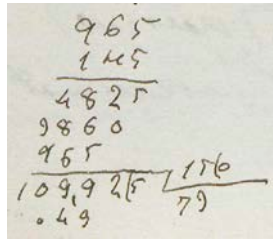 965
145
4825
3860
965
109,92(5 15(0
.49 73